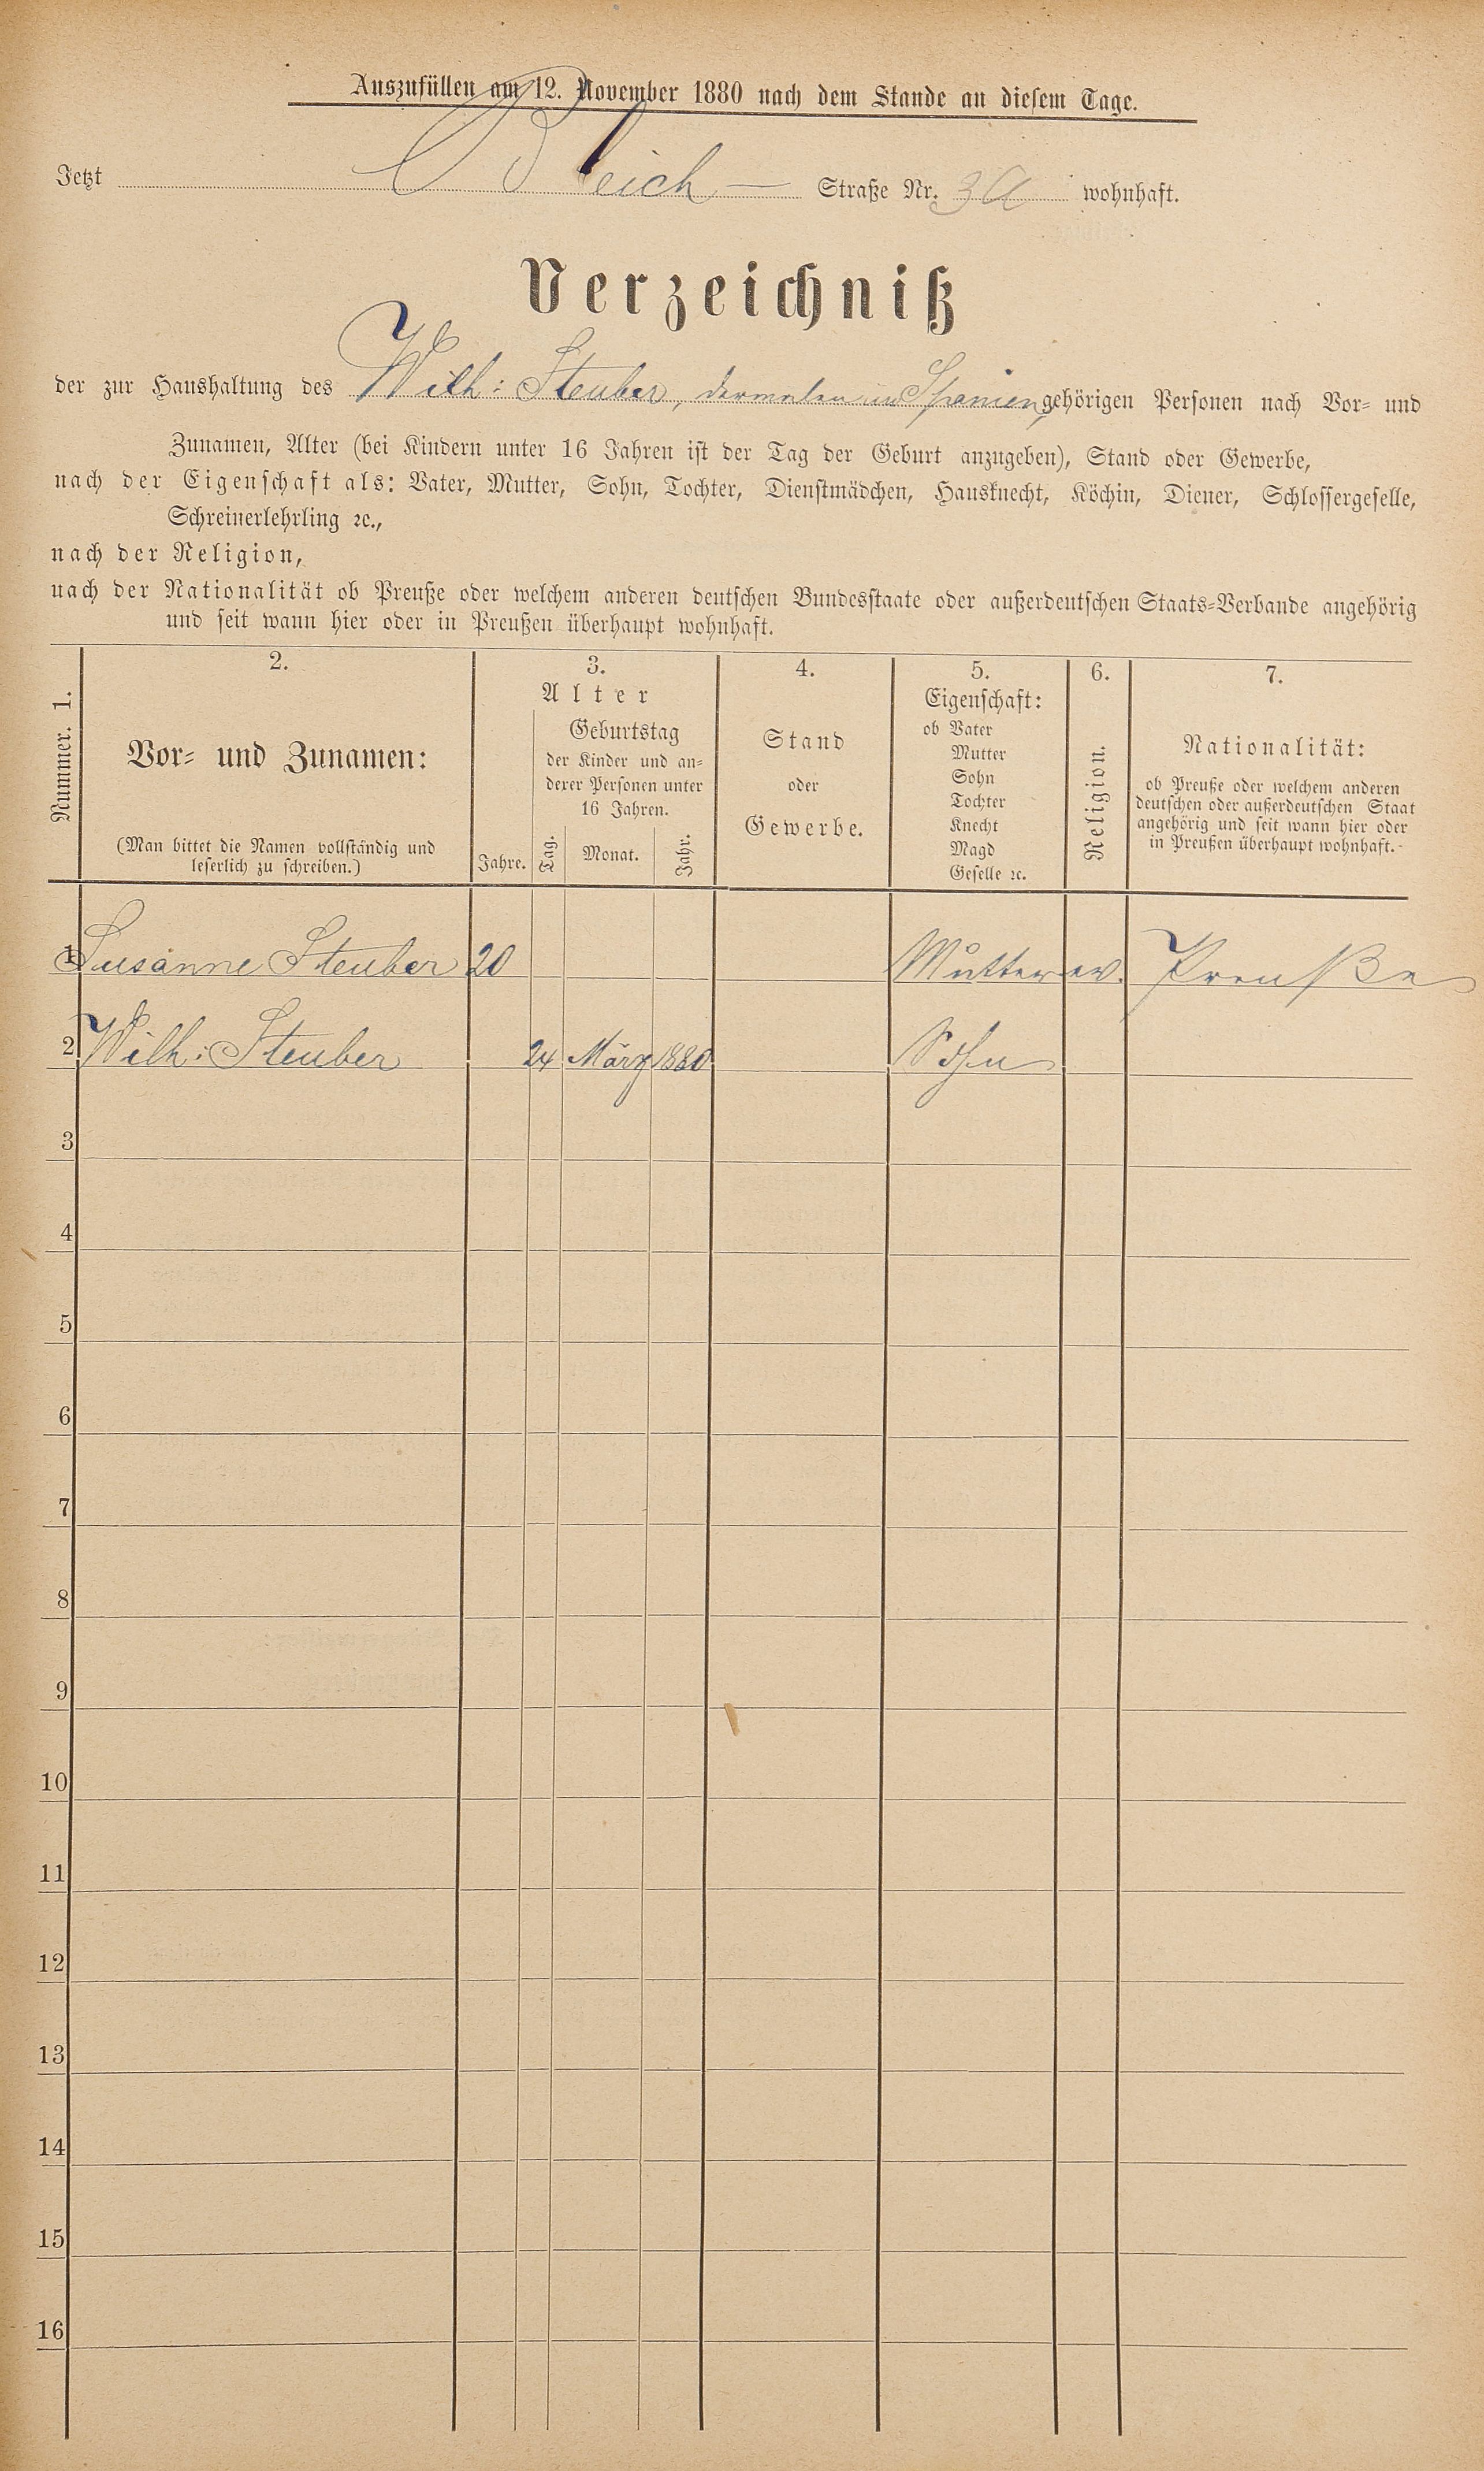 Auszufüllen am 12. November 1880 nach dem Stande an diesem Tage.
Jetzt Bleich— Straße Nr. 3a wohnhaft.
Verzeichniß
der zur Haushaltung des Wilh: Steuber, dermalen in Spanien, gehörigen Personen nach Vor- und
Zunamen, Alter (bei Kindern unter 16 Jahren ist der Tag der Geburt anzugeben), Stand oder Gewerbe,
nach der Eigenschaft als: Vater, Mutter, Sohn, Tochter, Dienstmädchen, Hausknecht, Köchin, Diener, Schlossergeselle,
Schreinerlehrling ꝛc.,
nach der Religion,
nach der Nationalität ob Preuße oder welchem anderen deutschen Bundesstaate oder außerdeutschen Staats-Verbande angehörig
und seit wann hier oder in Preußen überhaupt wohnhaft.
Nummer. 1.
2.
Vor- und Zunamen:
(Man bittet die Namen vollständig und
leserlich zu schreiben.)
3.
Alter
Jahre.
Geburtstag
der Kinder und an-
derer Personen unter
16 Jahren.
Tag. Monat. Jahr.
4.
Stand
oder
Gewerbe.
5.
Eigenschaft:
ob Vater
Mutter
Sohn
Tochter
Knecht
Magd
Geselle ꝛc.
6.
Religion.
7.
Nationalität:
ob Preuße oder welchem anderen
deutschen oder außerdeutschen Staat
angehörig und seit wann hier oder
in Preußen überhaupt wohnhaft.-
1 Susanne Steuber 20 Mutter ev. Preuße
2 Wilh: Steuber 24 März 1880 Sohn
3
4
5
6
7
8
9
10
11
12
13
14
15
16